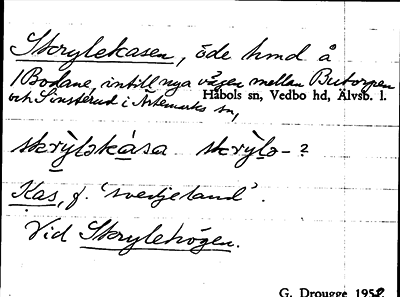 Skrylekasen, öde hmd å
/Bodane, intill nya vägen mellan Butorpen
och Sinsterud i Ärtemarks sn,
Håbols sn, Vedbo hd, Älvsb. l.
skrỳləkása skrỳlə-?
Kas, f. 'svedjeland'.
Vid Skrylehögen.
G. Drougge 1952.